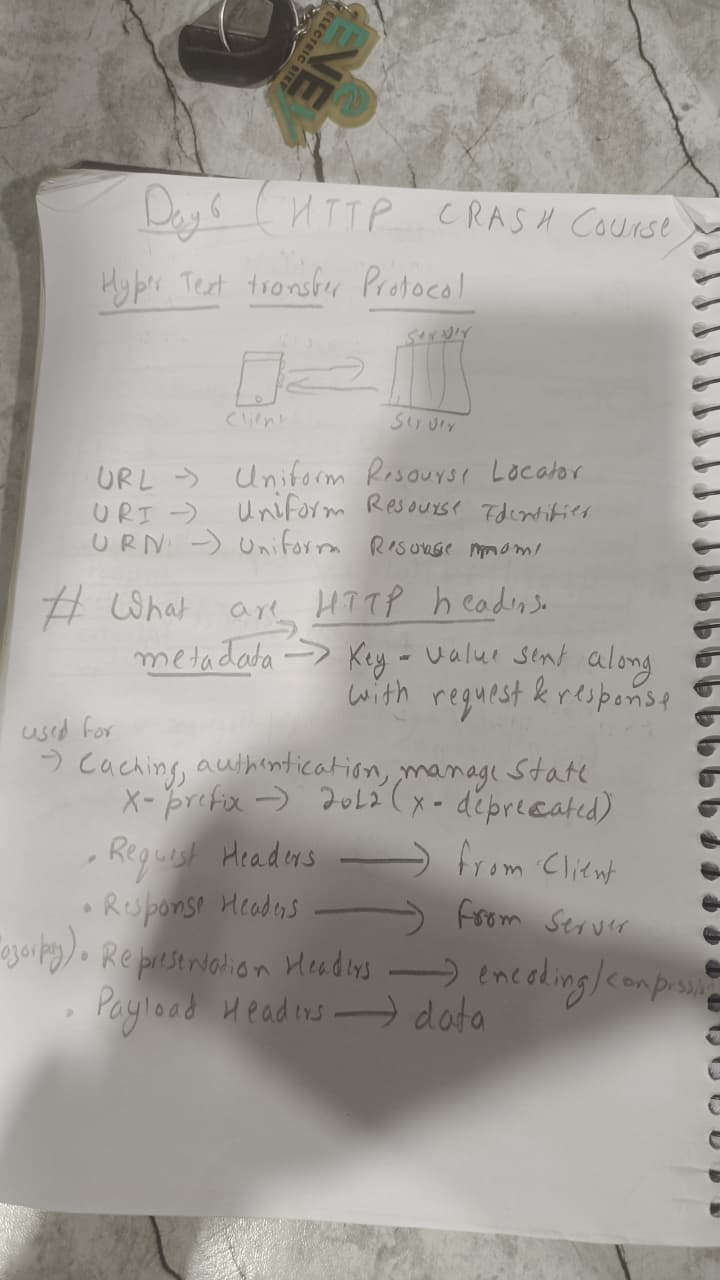 EVEY
ELECTRIC BIKE
Day 6 (HTTP CRASH Course)
Hyper Text transfer Protocol
Server
Client
Server
URL → Uniform Resourse Locator
URI → Uniform Resourse Identifier
URN → Uniform Resouse
# What are HTTP headers.
metadata → Key - value sent along
with request & response
used for
→ Caching, authentication, manage State
X- prefix → 2012 (X- deprecated)
• Request Headers → from Client
• Response Headers → From Server
• Representation Headers → encoding/compression
• Payload Headers → data